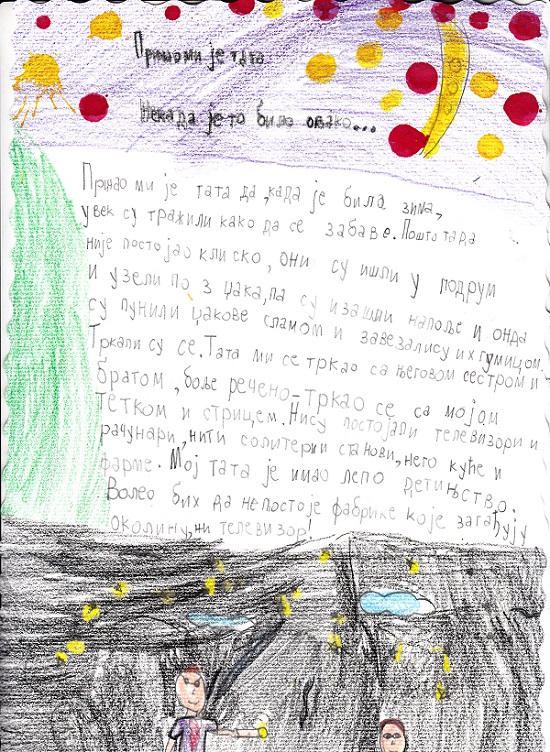 Причао ми је тата
Некада је то било овако...
Причао ми је тата да, када је била зима,
увек су тражили како да се забаве. Пошто тада
није постојао клиско, они су ишли у подрум
и узели по 3 џака, па су изашли напоље и онда
су пунили џакове сламом и завезали су их гумицом.
Тркали су се. Тата ми се тркао са његовом сестром и
братом, боље речено-тркао се са мојом
тетком и стрицем. Нису постојали телевизори и
рачунари, нити солитерни станови, него куће и
фарме. Мој тата је имао лепо детињство.
Волео бих да непостоје фабрике које загађују
околину, ни телевизор!